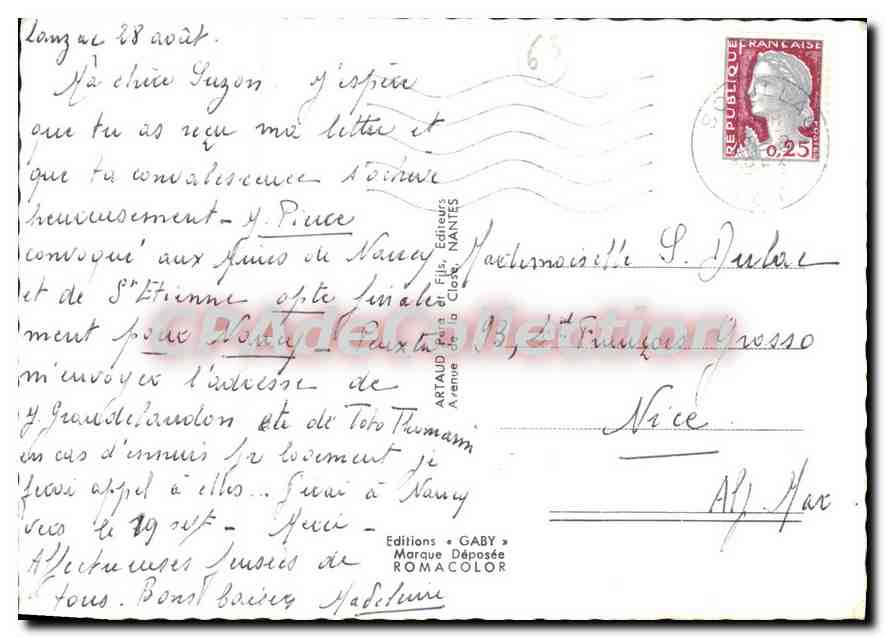 Lanzac 28 août.
Ma chère Suzon. J'espère
que tu as reçu ma lettre et
que ta convalescence s'achève
heureusement - J. Pierre
convoqué aux Mines de Nancy
et de St Etienne opte finale
ment pour Nancy - Peux tu
m'envoyer l'adresse de
J. Grandclaudon et de Toto Thomassin
en cas d'ennuis pr logement je
ferai appel à elles... J'irai à Nancy
vers le 19 sept - Merci -
Affectueuses pensées de
tous. Bons baisers Madeleine
63
RÉPUBLIQUE FRANÇAISE
POSTES
0,25
ARTAUD Père et Fils, Editeurs
Avenue de la Close, NANTES
Mademoiselle S. Dulac
93, Bd François Grosso
Nice
Alp. Mar
Editions « GABY »
Marque Déposée
ROMACOLOR
CPAdeCollection